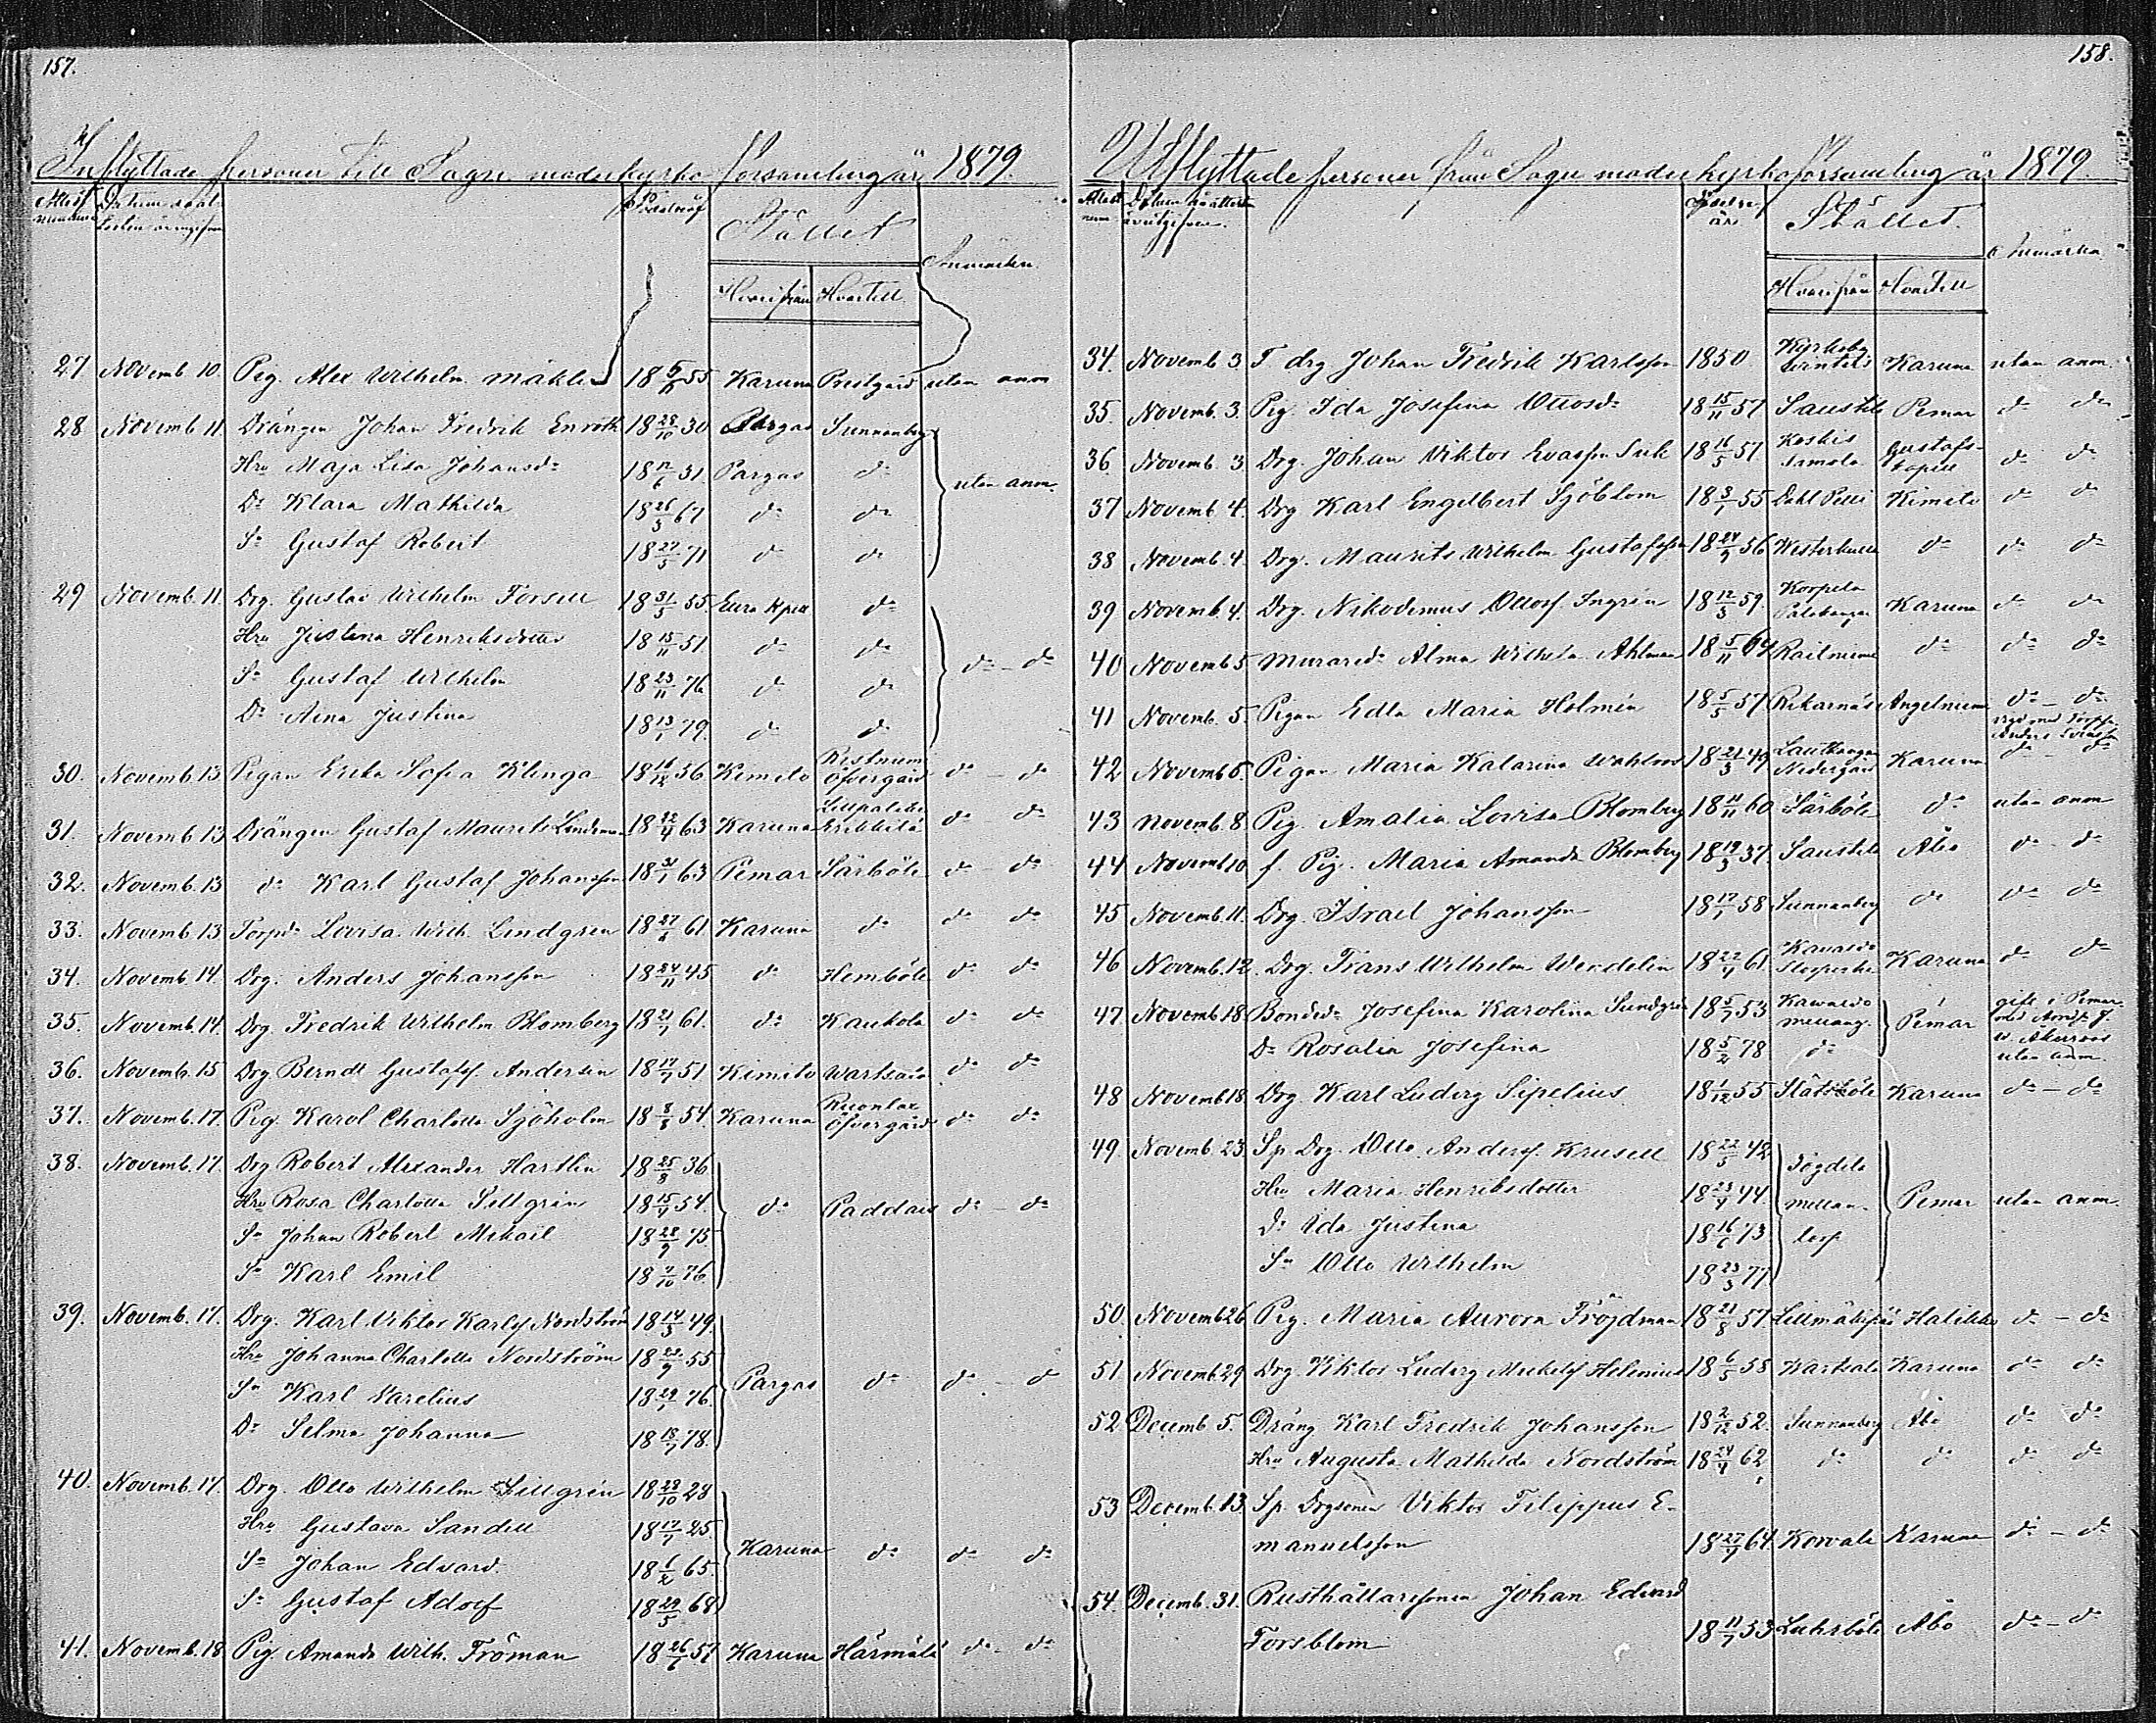 157.
Inflyttade personer till Sagu moderkyrko församling år 1879.
Stället
Anmärkn.
Hvarifrån Hvartill
27 Novemb 10. Pig. Alex Wilhelm. 18 55 Karuna Prestgård utan anm
28 Novemb 11. Drängen Johan Fredrik Enroth 18 28/10 30 Pargas Sunnanberg
Hru Maja Lisa Johansdr 18 31. Pargas do
Dr Klara Mathilda 18 26/3 67 do do utan anm.
Sn Gustaf Robert 18 27/5 71 do do
29 Novemb. 11. Drg. Gustav Wilhelm Forsell 18 31/5 55 Eura Kpell do
Hru Justina Henriksdotter 18 15/11 51. do do
Sn Gustaf Wilhelm 18 23/11 76 do do do - do
Dr Aina Justina 18 13/1 79. do do
30. Novemb. 13. Pigan Erika Sofia Klinga 18 16/12 36 Kimito Ristniemi Öfvergård do - do
31. Novemb 13 Drängen Gustaf Maurits Lindeman 18 63 Karuna do - do
32. Novemb. 13 do Karl Gustaf Johansson 18 31/1 63 Pemar Särböle do - do
33. Novemb. 13 Torpdr Lovisa Wilh. Lindgren 18 27 61 Karuna do do do
34. Novemb. 14. Drg. Anders Johansson 18 24/11 45 do Hemböle do do
35. Novemb. 14. Drg. Fredrik Wilhelm Blomberg 18 21/7 61. do Kaukola do do
36. Novemb. 15 Drg Berndt Gustafsf. Andersin 18 17/7 51 Kimito Wartsaari do do
37. Novemb. 17. Pig. Karol Charlotta Sjöholm 18 8 54. Karuna Ruonlax Öfvergård do do
38. Novemb. 17. Drg Robert Alexander Hartlin 18 25/8 36
Hru Rosa Charlotta Sillgrén 18 15 54. do Paddais do - do
Sn Johan Robert Mikael 18 28/9 75
Sn Karl Emil 18 7/10 76.
39. Novemb. 17. Drg. Karl Viktor Karlsf Nordström 18 14/5 49.
Hru Johanna Charlotta Nordström 18 55
Sn Karl Narelius 18 29 76. Pargas do do - do
Dr Selma Johanna 18 18 78.
40. Novemb. 17. Drg. Otto Wilhelm Sillgrén 18 28/10 28
Hru Gustava Sandell 18 17 25
Sn Johan Edvard. 18 6/2 65. Karuna do do do
Sn Gustaf Adolf 18 29/5 68
41. Novemb. 18 Pig Amanda Wilh. Fröman 18 26/6 57 Karuna Härmälä do - do
158.
Utflyttade personer från Sagu moderkyrkoförsamling år 1879.
Stället.
Anmärkn
Hvarifrån Hvartill
34. Novemb 3. F. drg Johan Fredrik Karlsson 1850 Kyrkoby Karuna utan anm.
35. Novemb. 3. Pig. Ida Josefina Ottosdr 18 15/11 57 Saustila Pemar do do
36 Novemb. 3 Drg. Johan Viktor 18 16/5 57 Koskis Gustafs-kapell do do
37 Novemb 4. Drg Karl Engelbert Sjöblom 18 3/1 55 Dahl Pelli Kimito do do
38 Novemb. 4. Drg. Maurits Wilhelm Gustafsson 18 24/9 56 Westerkulla do do do
39 Novemb. 4. Drg. Nikodemus Ottosf Ingrén 18 12/3 59. Korpela Karuna do do
40 Novemb 5 Muraredr Alma Wilhela Ahlman 18 5/11 64 Railniemi do do do
41 Novemb. 5. Pigan Edla Maria Holmén 18 5/5 57 Rikarnäs Angelniemi do - do
42 Novemb 6. Pigan Maria Katarina Wahlroos 18 21/3 49 Lautkangas Nedergård Karuna do - do
43 Novemb. 8. Pig. Amalia Lovisa Blomberg 18 11/11 60 Särböle do utan anm
44 Novemb 10 f. Pig. Maria Amanda Blomberg 18 19/3 37. Saustila Åbo do - do
45 Novemb. 11. Drg. Israel Johansson 18 17/1 58 Sunnanberg do do do
46 Novemb. 12. Drg. Frans Wilhelm Wendelin 18 22/4 61 Karuna do do
47 Novemb 18 Bondedr Josefina Karolina Sundgrén 18 5/7 53 Kawaldo mellang. Pemar gift i Pemar
Dr Rosalia Josefina 18 5/2 78 do utan anm.
48 Novemb 18 Drg. Karl Ludvig Sipelius 18 1/12 55 Slätsböle Karuna do - do
49 Novemb. 23 Sp Drg. Otto Andersf. Krusell 18 22/5 42
Hru Maria Henriksdotter 18 23 44. mellan- Pemar utan anm.
Dr Ida Justina 18 16/6 73 torp
Sn Otto Wilhelm 18 23/3 77
50. Novemb 26 Pig. Maria Aurora Fröjdman 18 21/8 57. Halikko do - do
51. Novemb 29 Drg. Viktor Ludvig Helenius 18 6/5 58 Karhala Karuna do do
52. Decemb 5. Dräng Karl Fredrik Johansson 18 2/12 52. Sunnanberg Åbo do do
Hru Augusta Mathilda Nordström 18 24 62 do do do do
53 Decemb. 13. Sp. Drgsonen Viktor Filippus E-
manuelsson 18 27/9 64. Korvala Karuna do - do
54. Decemb. 31. Rusthållaresonen Johan Edvard
Forsblom 18 11/7 53 Luhsböle Åbo do - do